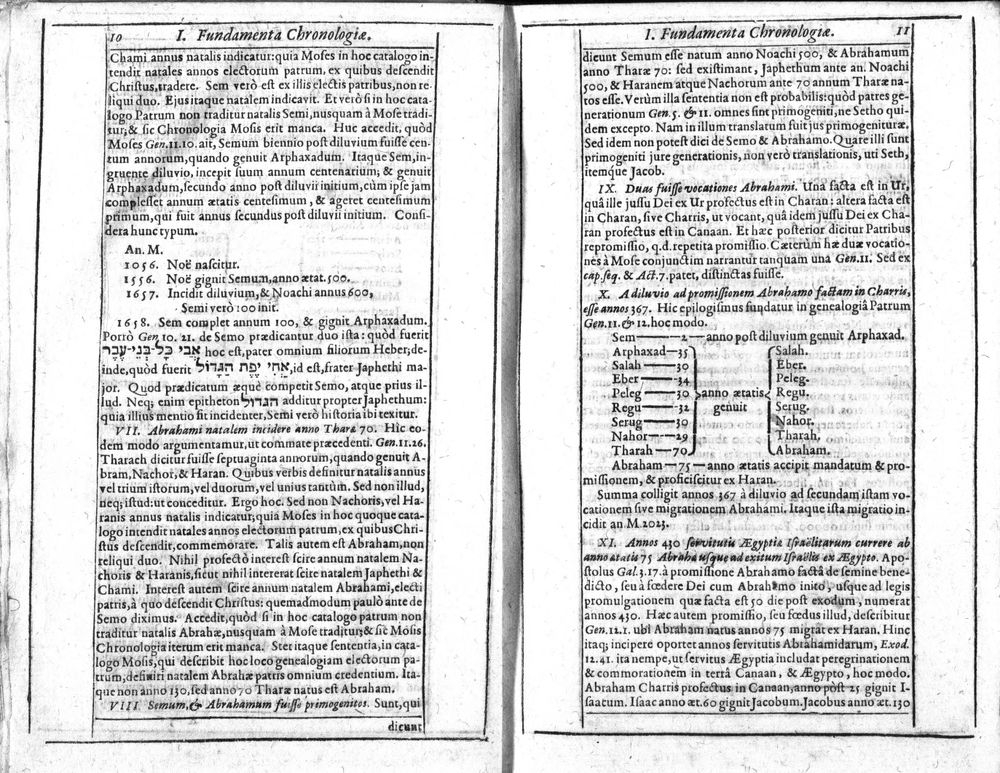 10 I. Fundamenta Chronologiæ.
Chami annus natalis indicatur: quia Moses in hoc catalogo in-
tendit natales annos electorum patrum, ex quibus descendit
Christus, tradere. Sem verò est ex illis electis patribus, non re-
liqui duo. Ejus itaque natalem indicavit. Et verò si in hoc cata-
logo Patrum non traditur natalis Semi, nusquam à Mose tradi-
tur; & sic Chronologia Mosis erit manca. Huc accedit, quòd
Moses Gen. 11. 10. ait, Semum biennio post diluvium fuisse cen-
tum annorum, quando genuit Arphaxadum. Itaque Sem, in-
gruente diluvio, incepit suum annum centenarium; & genuit
Arphaxadum, secundo anno post diluvii initium, cùm ipse jam
complesset annum ætatis centesimum, & ageret centesimum
primum, qui fuit annus secundus post diluvii initium. Consi-
dera hunc typum.
An. M.
1056. Noë nascitur.
1556. Noë gignit Semum, anno ætat. 500.
1657. Incidit diluvium, & Noachi annus 600,
Semi verò 100 init.
1658. Sem complet annum 100, & gignit Arphaxadum.
Porrò Gen 10. 21. de Semo prædicantur duo ista: quòd fuerit
אבי כל־בני־עבר hoc est, pater omnium filiorum Heber; de-
inde, quòd fuerit אחי יפת הגדול, id est, frater Japhethi ma-
jor. Quod prædicatum æquè competit Semo, atque prius il-
lud. Neq; enim epitheton הגדול additur propter Japhethum:
quia illius mentio fit incidenter, Semi verò historia ibi texitur.
VII. Abrahami natalem incidere anno Tharæ 70. Hîc eo-
dem modo argumentamur, ut commate præcedenti. Gen. 11. 26.
Tharach dicitur fuisse septuaginta annorum, quando genuit A-
bram, Nachor, & Haran. Quibus verbis definitur natalis annus
vel trium istorum, vel duorum, vel unius tantùm. Sed non illud,
neq; istud: ut conceditur. Ergo hoc. Sed non Nachoris, vel Ha-
ranis annus natalis indicatur, quia Moses in hoc quoque cata-
logo intendit natales annos electorum patrum, ex quibus Chri-
stus descendit, commemorare. Talis autem est Abraham, non
reliqui duo. Nihil profectò interest scire annum natalem Na-
choris & Haranis, sicut nihil intererat scire natalem Japhethi &
Chami. Interest autem scire annum natalem Abrahami, electi
patris, à quo descendit Christus: quemadmodum paulò ante de
Semo diximus. Accedit, quòd si in hoc catalogo patrum non
traditur natalis Abrahæ, nusquam à Mose traditur; & sic Mosis
Chronologia iterum erit manca. Ster itaque sententia, in cata-
logo Mosis, qui describit hoc loco genealogiam electorum pa-
trum, definiri natalem Abrahæ patris omnium credentium. Ita-
que non anno 130. sed anno 70 Tharæ natus est Abraham.
VIII Semum, & Abrahamum fuisse primogenitos. Sunt, qui
dicunt
I. Fundamenta Chronologiæ. 11
dicunt Semum esse natum anno Noachi 500, & Abrahamum
anno Tharæ 70: sed existimant, Japhethum ante an. Noachi
500, & Haranem atque Nachorum ante 70 annum Tharæ na-
tos esse. Verùm illa sententia non est probabilis: quòd patres ge-
nerationum Gen. 5. & 11. omnes sint primogeniti, ne Setho qui-
dem excepto. Nam in illum translatum fuit jus primogenituræ.
Sed idem non potest dici de Semo & Abrahamo. Quare illi sunt
primogeniti jure generationis, non verò translationis, uti Seth,
itemque Jacob.
IX. Duas fuisse vocationes Abrahami. Una facta est in Ur,
quâ ille jussu Dei ex Ur profectus est in Charan: altera facta est
in Charan, sive Charris, ut vocant, quâ idem jussu Dei ex Cha-
ran profectus est in Canaan. Et hæc posterior dicitur Patribus
repromissio, q.d. repetita promissio. Cæterùm hæ duæ vocatio-
nes à Mose conjunctim narrantur tanquam una Gen. 11. Sed ex
cap. seq. & Act. 7. patet, distinctas fuisse.
X. A diluvio ad promissionem Abrahamo factam in Charris,
esse annos 367. Hic epilogismus fundatur in genealogiâ Patrum
Gen. 11. & 12. hoc modo.
Sem — 2 — anno post diluvium genuit Arphaxad.
Arphaxad — 35 Salah.
Salah — 30 Eber.
Eber — 34 Peleg.
Peleg — 30 anno ætatis Regu.
Regu — 32 genuit Serug.
Serug — 30 Nahor.
Nahor — 29 Tharah.
Tharah — 70 Abraham.
Abraham — 75 — anno ætatis accipit mandatum & pro-
missionem, & proficiscitur ex Haran.
Summa colligit annos 367 à diluvio ad secundam istam vo-
cationem sive migrationem Abrahami. Itaque ista migratio in-
cidit an M. 2023.
XI. Annos 430 servitutis Ægyptiæ Israëlitarum currere ab
anno ætatis 75 Abrahæ usque ad exitum Israëlis ex Ægypto. Apo-
stolus Gal. 3. 17. à promissione Abrahamo factâ de semine bene-
dicto, seu à fœdere Dei cum Abrahamo inito, usque ad legis
promulgationem quæ facta est 50 die post exodum, numerat
annos 430. Hæc autem promissio, seu fœdus illud, describitur
Gen. 12. 1. ubi Abraham natus annos 75 migrat ex Haran. Hinc
itaq; incipere oportet annos servitutis Abrahamidarum, Exod.
12. 41. ita nempe, ut servitus Ægyptia includat peregrinationem
& commorationem in terrâ Canaan, & Ægypto, hoc modo.
Abraham Charris profectus in Canaan, anno post 25 gignit I-
saacum. Isaac anno æt. 60 gignit Jacobum. Jacobus anno æt. 130